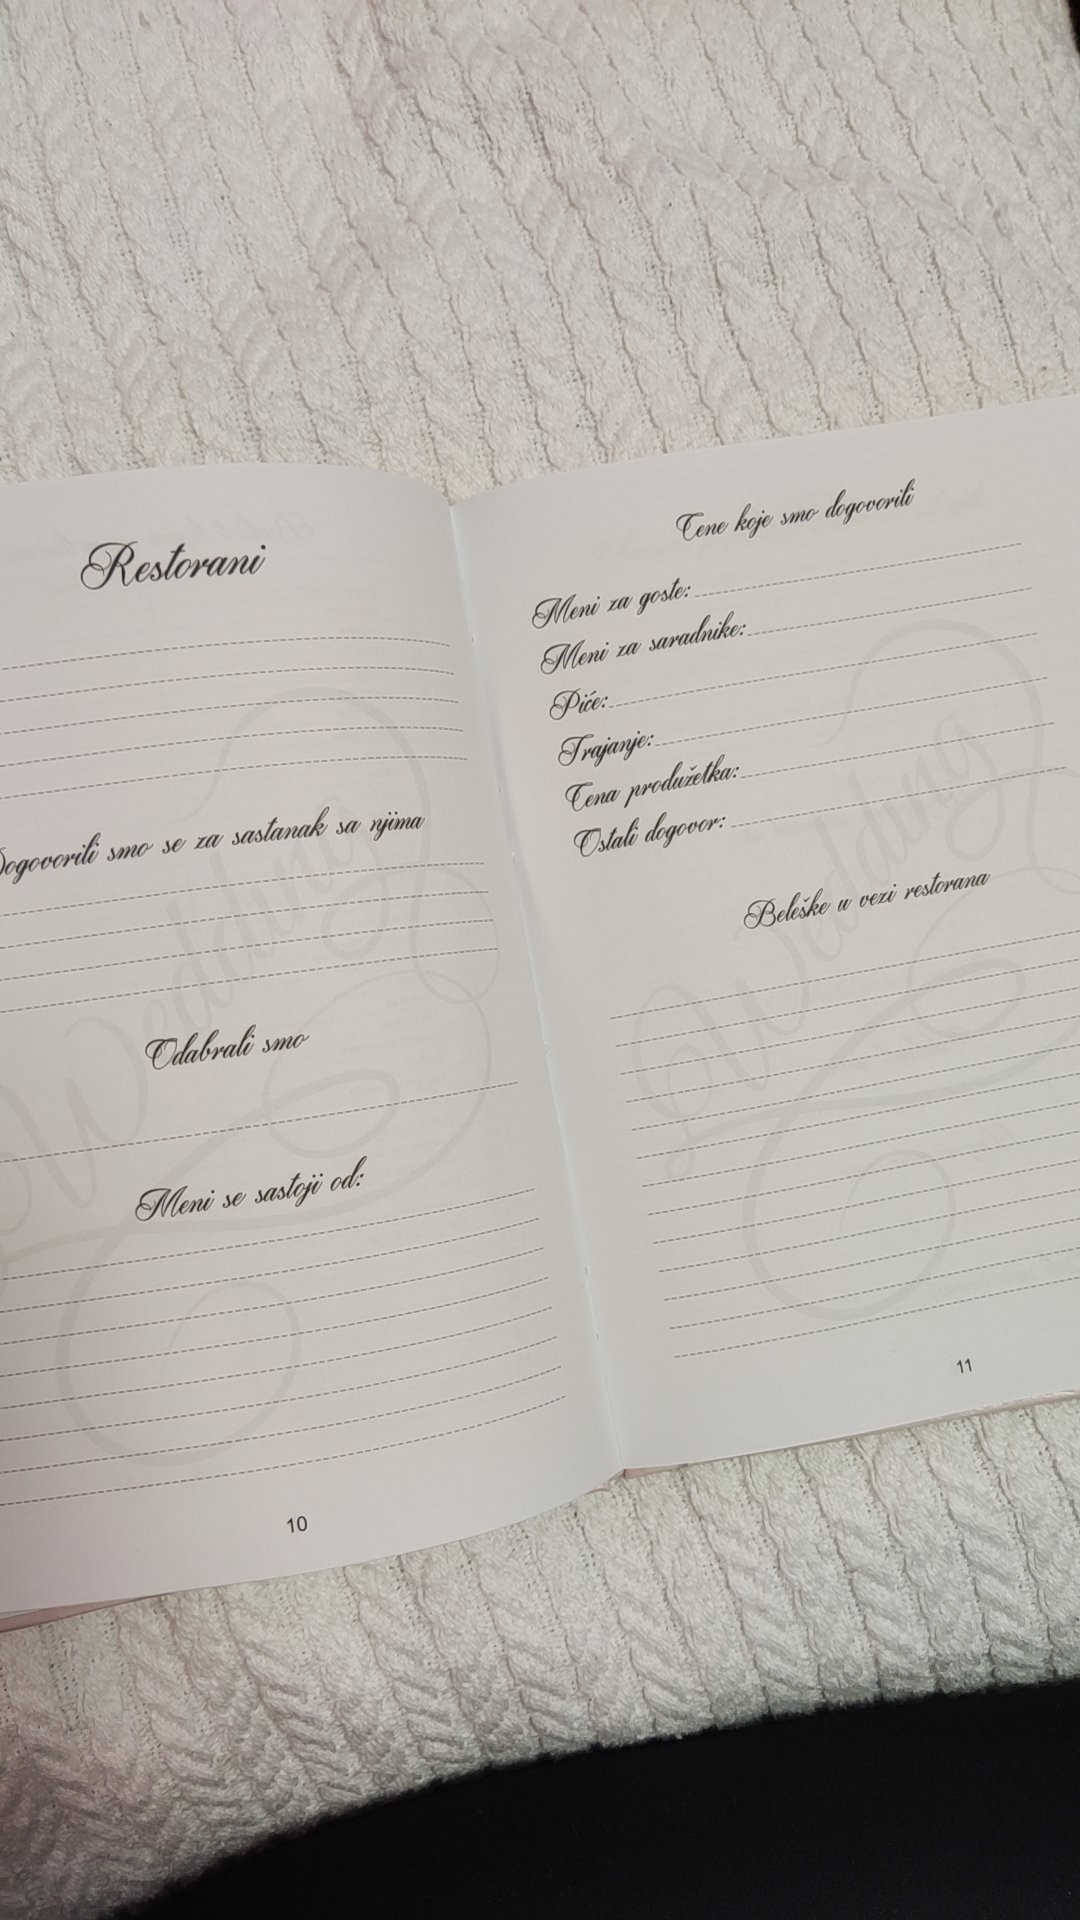 Restorani
Dogovorili smo se za sastanak sa njima
Odabrali smo
Meni se sastoji od:
Wedding
10
Cene koje smo dogovorili
Meni za goste:
Meni za saradnike:
Piće:
Trajanje:
Cena produžetka:
Ostali dogovor:
Beleške u vezi restorana
Wedding
11